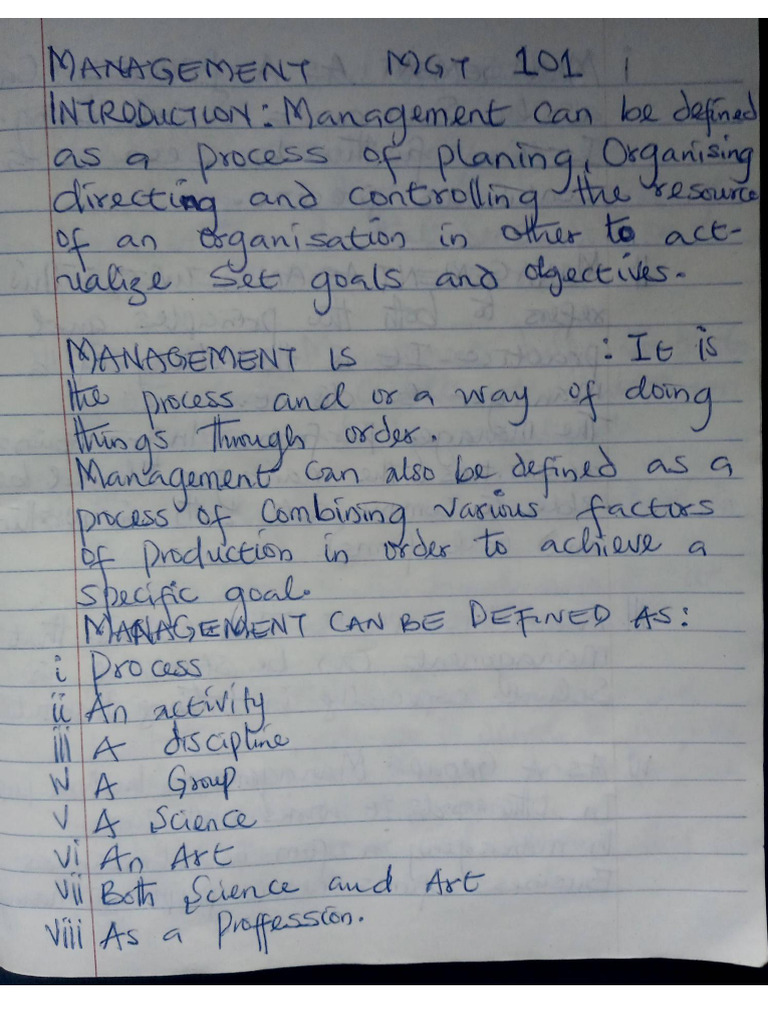 MANAGEMENT MGT 101
INTRODUCTION: Management can be defined
as a process of planing, Organising
directing and controlling the resource
of an organisation in other to act-
ualize set goals and objectives.
MANAGEMENT IS : It is
the process and or a way of doing
things through order.
Management can also be defined as a
process of combining various factors
of production in order to achieve a
specific goal.
MANAGEMENT CAN BE DEFINED AS:
i Process
ii An activity
iii A discipline
iv A Group
v A Science
vi An Art
vii Both Science and Art
viii As a Proffession.